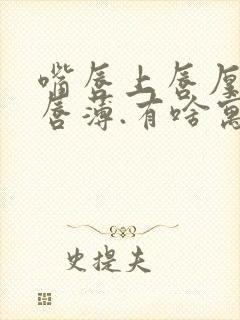 嘴唇上唇厚
唇薄.有啥寓
史提夫